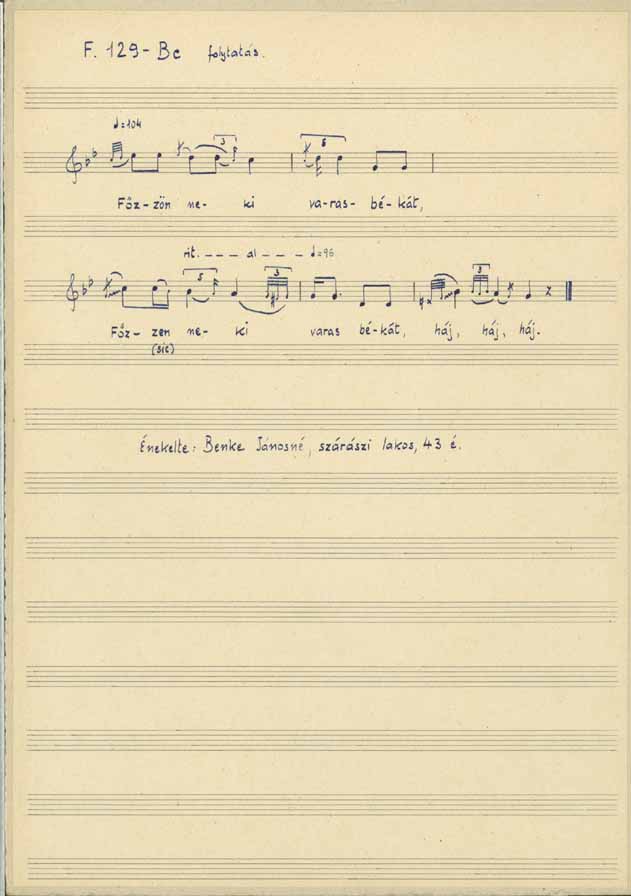 F. 129-Bc folytatás.
♩=104
3 5
Főz-zön ne- ki va-ras- bé-kát,
rit. --- al --- ♩=96
5 3 3
Főz-zen ne- ki varas bé-kát, háj, háj, háj.
(sic)
Énekelte: Benke Jánosné, szárászi lakos, 43 é.